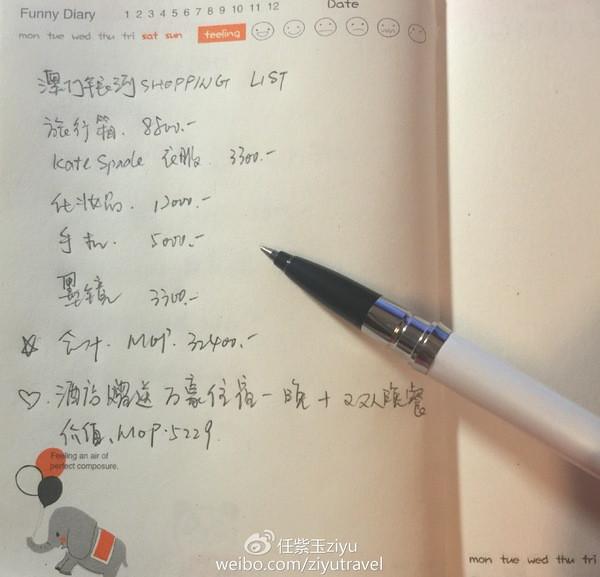 Funny Diary 1 2 3 4 5 6 7 8 9 10 11 12 Date
mon tue wed thu fri sat sun feeling
澳门银河 SHOPPING LIST
旅行箱. 8500.-
Kate Spade 衣服. 3300.-
化妆品. 12000.-
手机. 5000.-
墨镜 3300.-
☆ 合计. MOP. 32400.-
♡. 酒店赠送 万豪住宿一晚 + 双人晚餐
价值. MOP. 5229.
Feeling an air of
perfect composure.
任紫玉ziyu
weibo.com/ziyutravel
mon tue wed thu fri